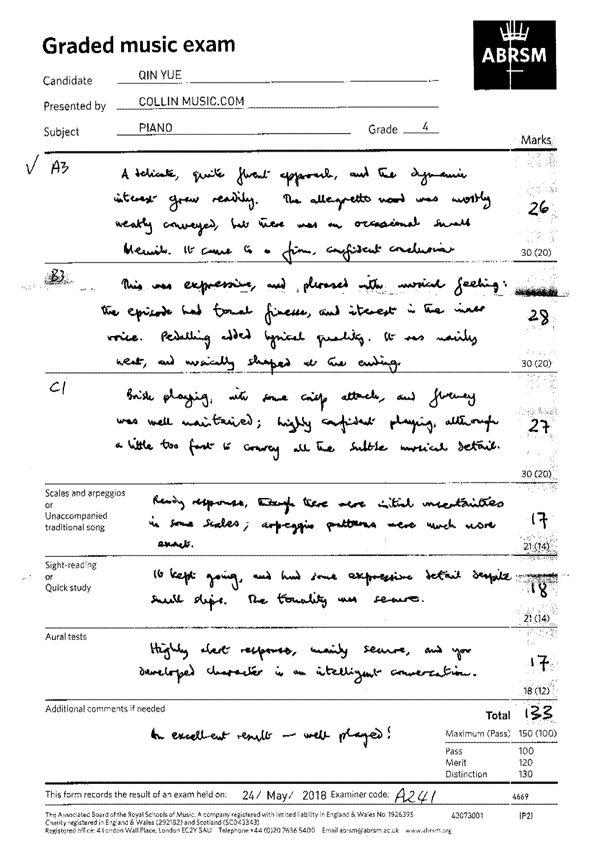 Graded music exam
ABRSM
Candidate QIN YUE
Presented by COLLIN MUSIC.COM
Subject PIANO Grade 4
Marks
✓ A3
A delicate, quite fluent approach, and the dynamic
interest grew readily. The allegretto mood was mostly
neatly conveyed, but there was an occasional small
blemish. It came to a firm, confident conclusion
26
30 (20)
B3
This was expressive, and phrased with musical feeling:
the episode had tonal finesse, and interest in the inner
voice. Pedalling added lyrical quality. It was mainly
neat, and musically shaped at the ending.
28
30 (20)
C1
Brisk playing, with some crisp attack, and fluency
was well maintained; highly confident playing, although
a little too fast to convey all the subtle musical detail.
27
30 (20)
Scales and arpeggios
or
Unaccompanied
traditional song
Ready response, though there were initial uncertainties
in some scales; arpeggio patterns were much more
exact.
17
21 (14)
Sight-reading
or
Quick study
It kept going, and had some expressive detail despite
small slips. The tonality was secure.
18
21 (14)
Aural tests
Highly alert response, mainly secure, and you
developed character in an intelligent conversation.
17
18 (12)
Additional comments if needed
An excellent result – well played!
Total 133
Maximum (Pass) 150 (100)
Pass 100
Merit 120
Distinction 130
This form records the result of an exam held on: 24/ May/ 2018 Examiner code: A241 4669
The Associated Board of the Royal Schools of Music. A company registered with limited liability in England & Wales No. 1926395
Charity registered in England & Wales (292182) and Scotland (SC043343)
Registered office: 4 London Wall Place, London EC2Y 5AU Telephone +44 (0)20 7636 5400 Email abrsm@abrsm.ac.uk www.abrsm.org
43073001 (P2)